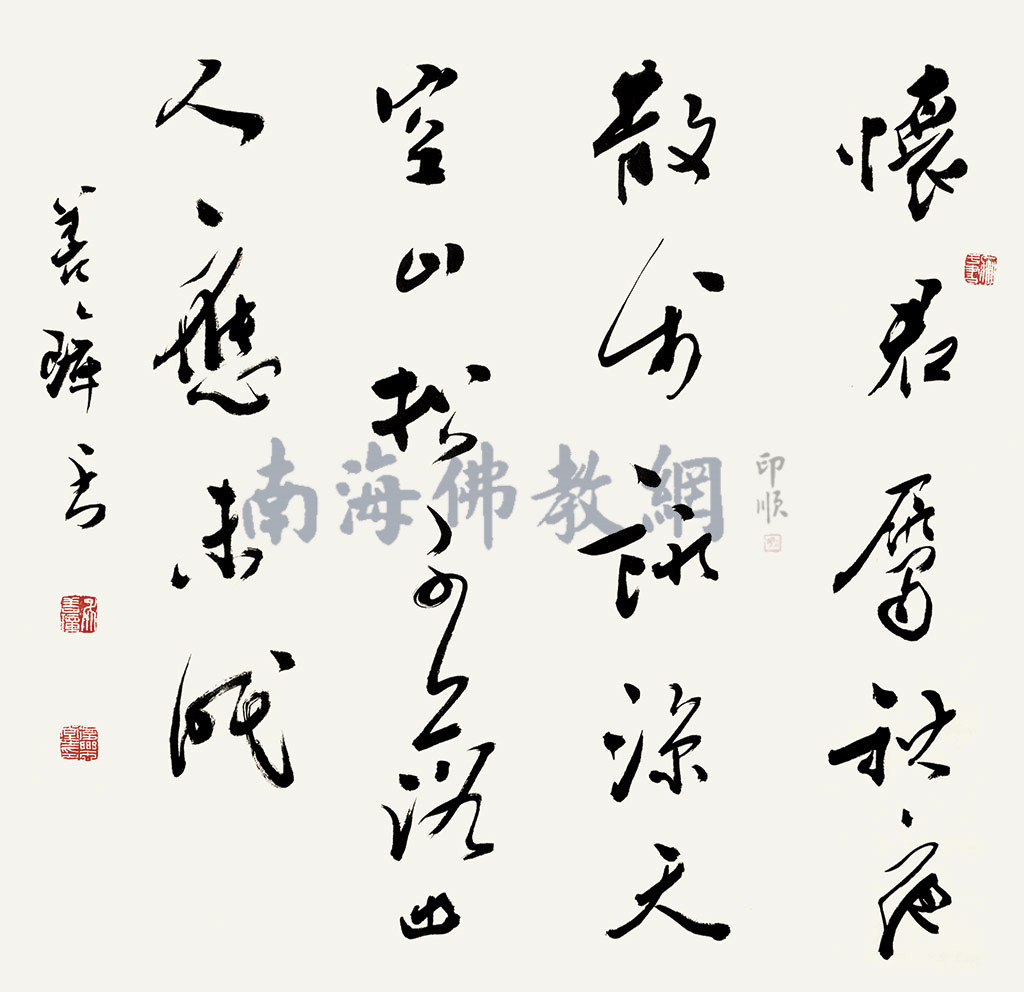 懷君屬秋夜
散步詠涼天
空山松子落幽
人應未眠
南海佛教網
印順